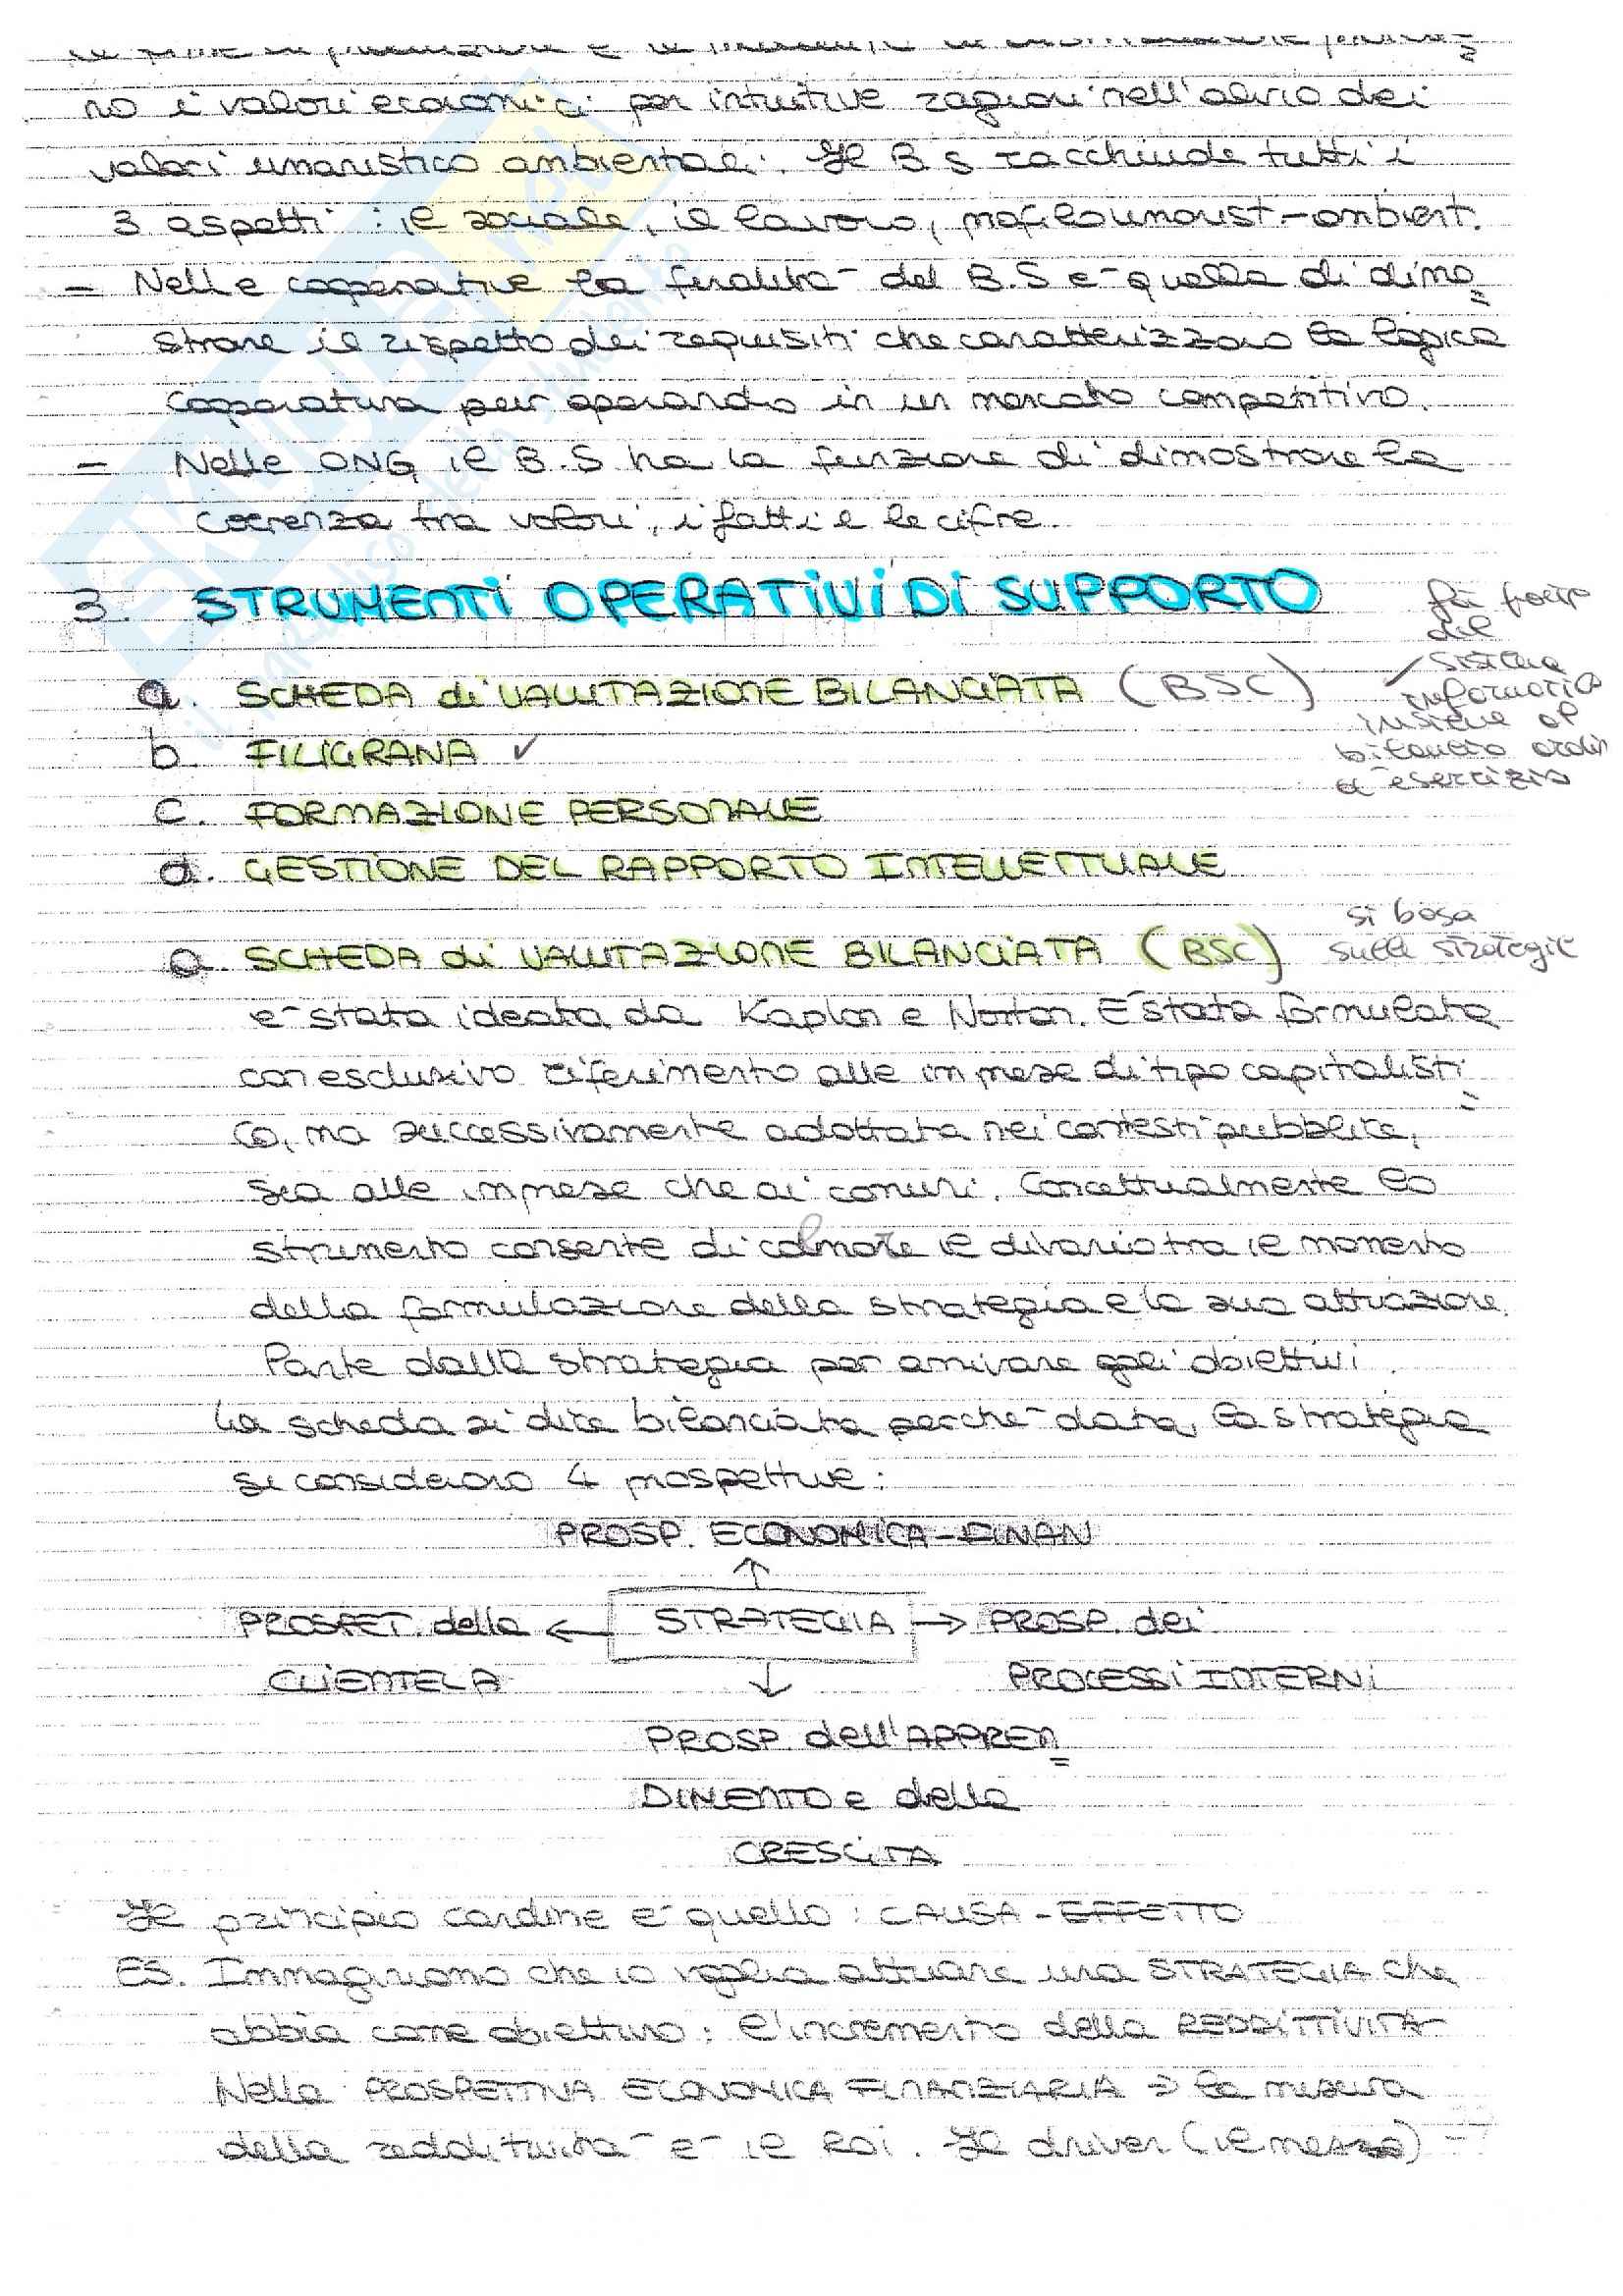 no i valori economici per intuitive ragioni nell'alveo dei
valori umanistico ambientali. Il B S racchiude tutti i
3 aspetti : il sociale, il lavoro, profilo umanist.-ambient.
= Nelle cooperative la finalità del B.S è quella di dimo=
strare il rispetto dei requisiti che caratterizzano la logica
cooperativa pur operando in un mercato competitivo.
= Nelle ONG il B.S ha la funzione di dimostrare la
coerenza tra valori, i fatti e le cifre.
3. STRUMENTI OPERATIVI DI SUPPORTO
fa parte
del
sistema
informativo
insieme al
bilancio ordin
d'esercizio
a. SCHEDA di VALUTAZIONE BILANCIATA (BSC)
b. FILIGRANA ✓
c. FORMAZIONE PERSONALE
d. GESTIONE DEL RAPPORTO INTELLETTUALE
a. SCHEDA di VALUTAZIONE BILANCIATA (BSC)
si basa
sulle strategie
è stata ideata da Kaplan e Norton. È stata formulata
con esclusivo riferimento alle imprese di tipo capitalisti=
co, ma successivamente adottata nei contesti pubblici,
sia alle imprese che ai comuni. Concettualmente lo
strumento consente di colmare il divario tra il momento
della formulazione della strategia e la sua attuazione.
Parte dalla strategia per arrivare agli obiettivi.
La scheda si dice bilanciata perchè data, la strategia
si considerano 4 prospettive:
PROSP. ECONOMICA-FINAN
PROSPET. della ← STRATEGIA → PROSP. dei
CLIENTELA PROCESSI INTERNI
PROSP. dell'APPREN=
DIMENTO e della
CRESCITA
Il principio cardine è quello : CAUSA - EFFETTO
ES. Immaginiamo che io voglia attuare una STRATEGIA che
abbia come obiettivo: l'incremento della REDDITTIVITÀ
Nella PROSPETTIVA ECONOMICA FINANZIARIA → la misura
della redditività è il ROI. Il driver (il mezzo)